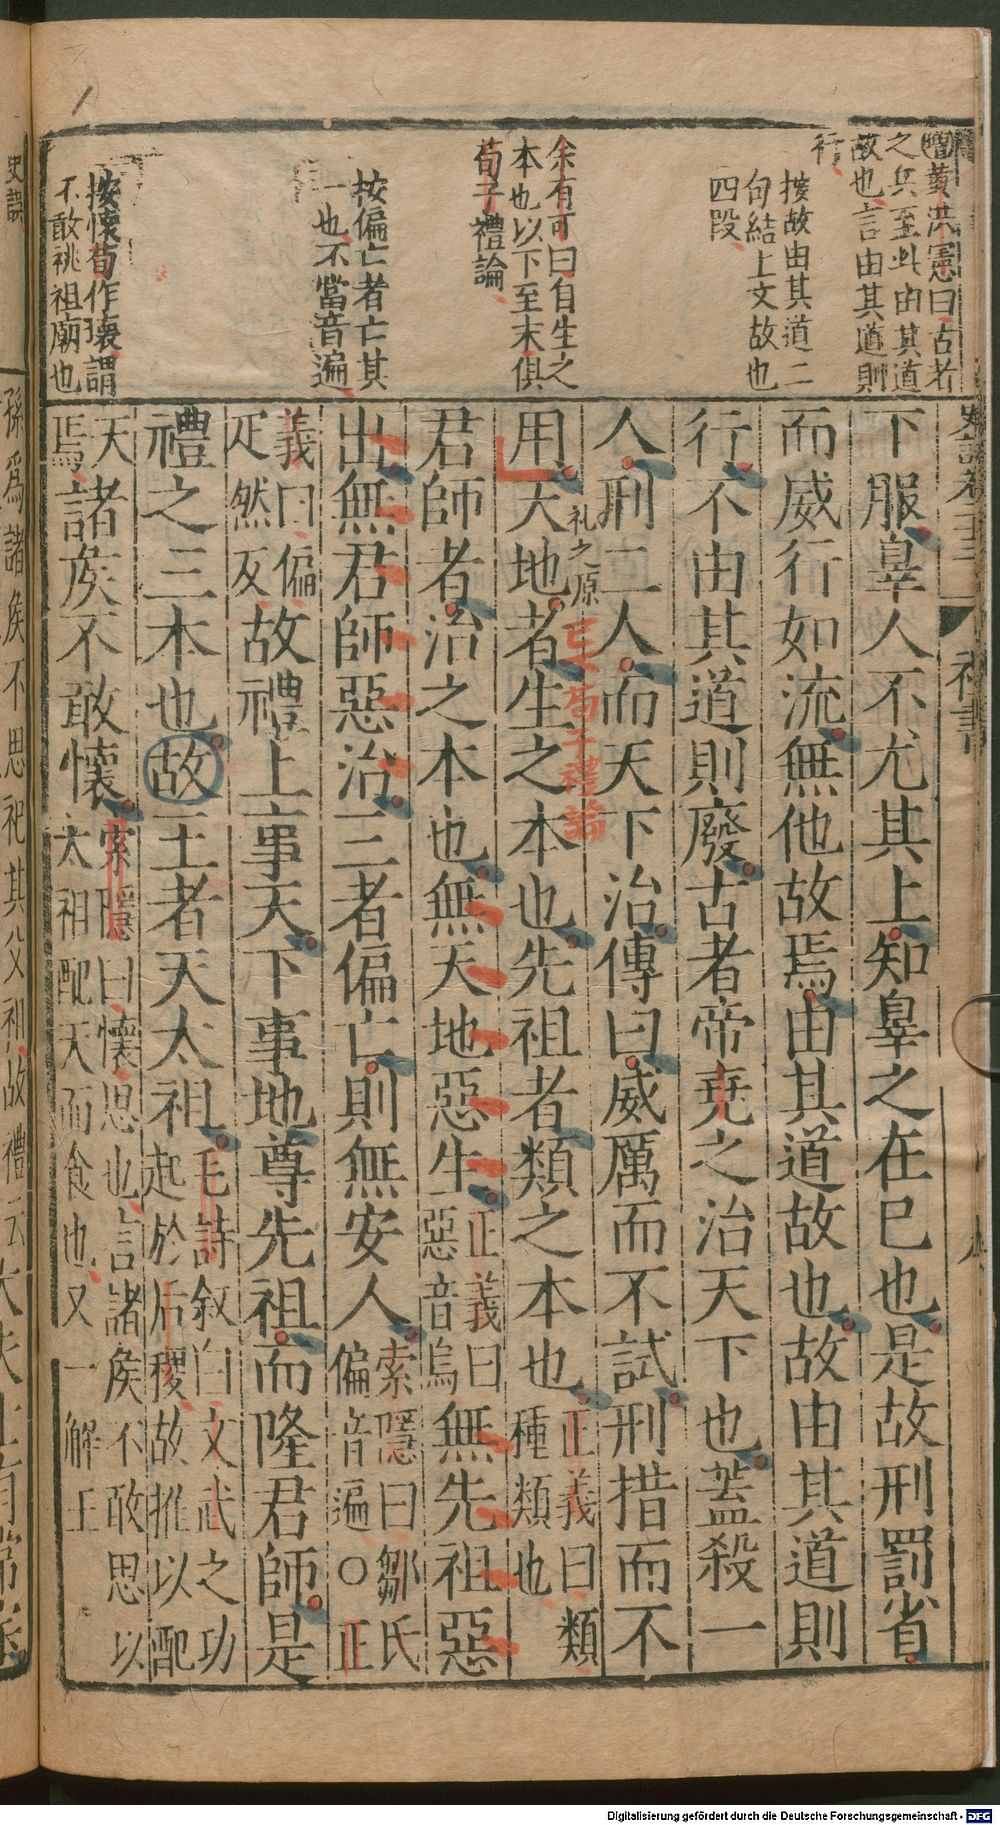 增黄洪憲曰古者
之兵至此由其道
故也言由其道則
行
按故由其道二
句結上文故也
四段
余有可曰自生之
本也以下至末俱
荀子禮論
按偏亡者亡其
一也不當音遍
按懷荀作壞謂
不敢祧祖廟也
下服辠人不尤其上知辠之在已也是故刑罰省
而威行如流無他故焉由其道故也故由其道則
行不由其道則廢古者帝堯之治天下也蓋殺一
人刑二人而天下治傳曰威厲而不試刑措而不
礼之原
荀子禮論
用天地者生之本也先祖者類之本也
正義曰類
種類也
君師者治之本也無天地惡生
正義曰
惡音烏
無先祖惡
出無君師惡治三者偏亡則無安人
索隱曰鄒氏
偏音遍○正
義曰偏
疋然反
故禮上事天下事地尊先祖而隆君師是
禮之三本也故王者天太祖
毛詩叙曰文武之功
起於后稷故推以配
天
焉
諸矦不敢懷
索隱曰懷思也言諸矦不敢思以
太祖配天而食也又一解王
史誤
孫爲諸矦不思祀其父祖故禮云
禮書
Digitalisierung gefördert durch die Deutsche Forschungsgemeinschaft - DFG